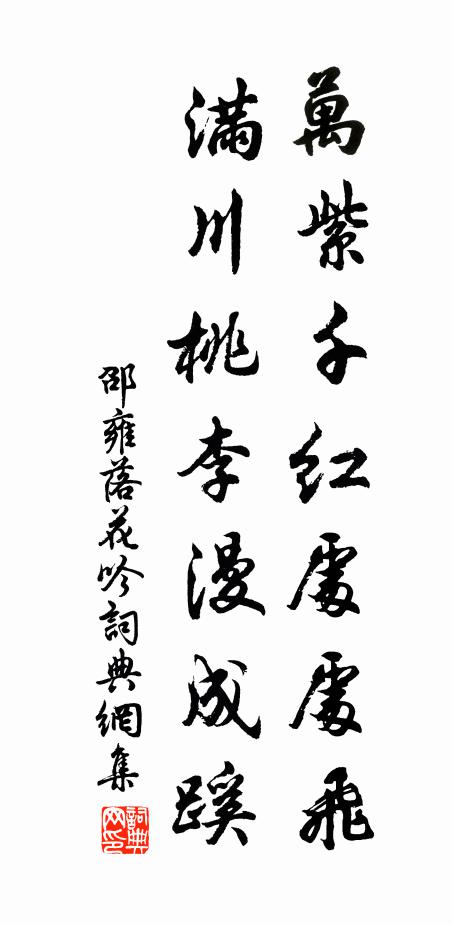 萬紫千紅處處飛
滿川桃李漫成蹊
邵雍落花吟詞典網集
詞典網印